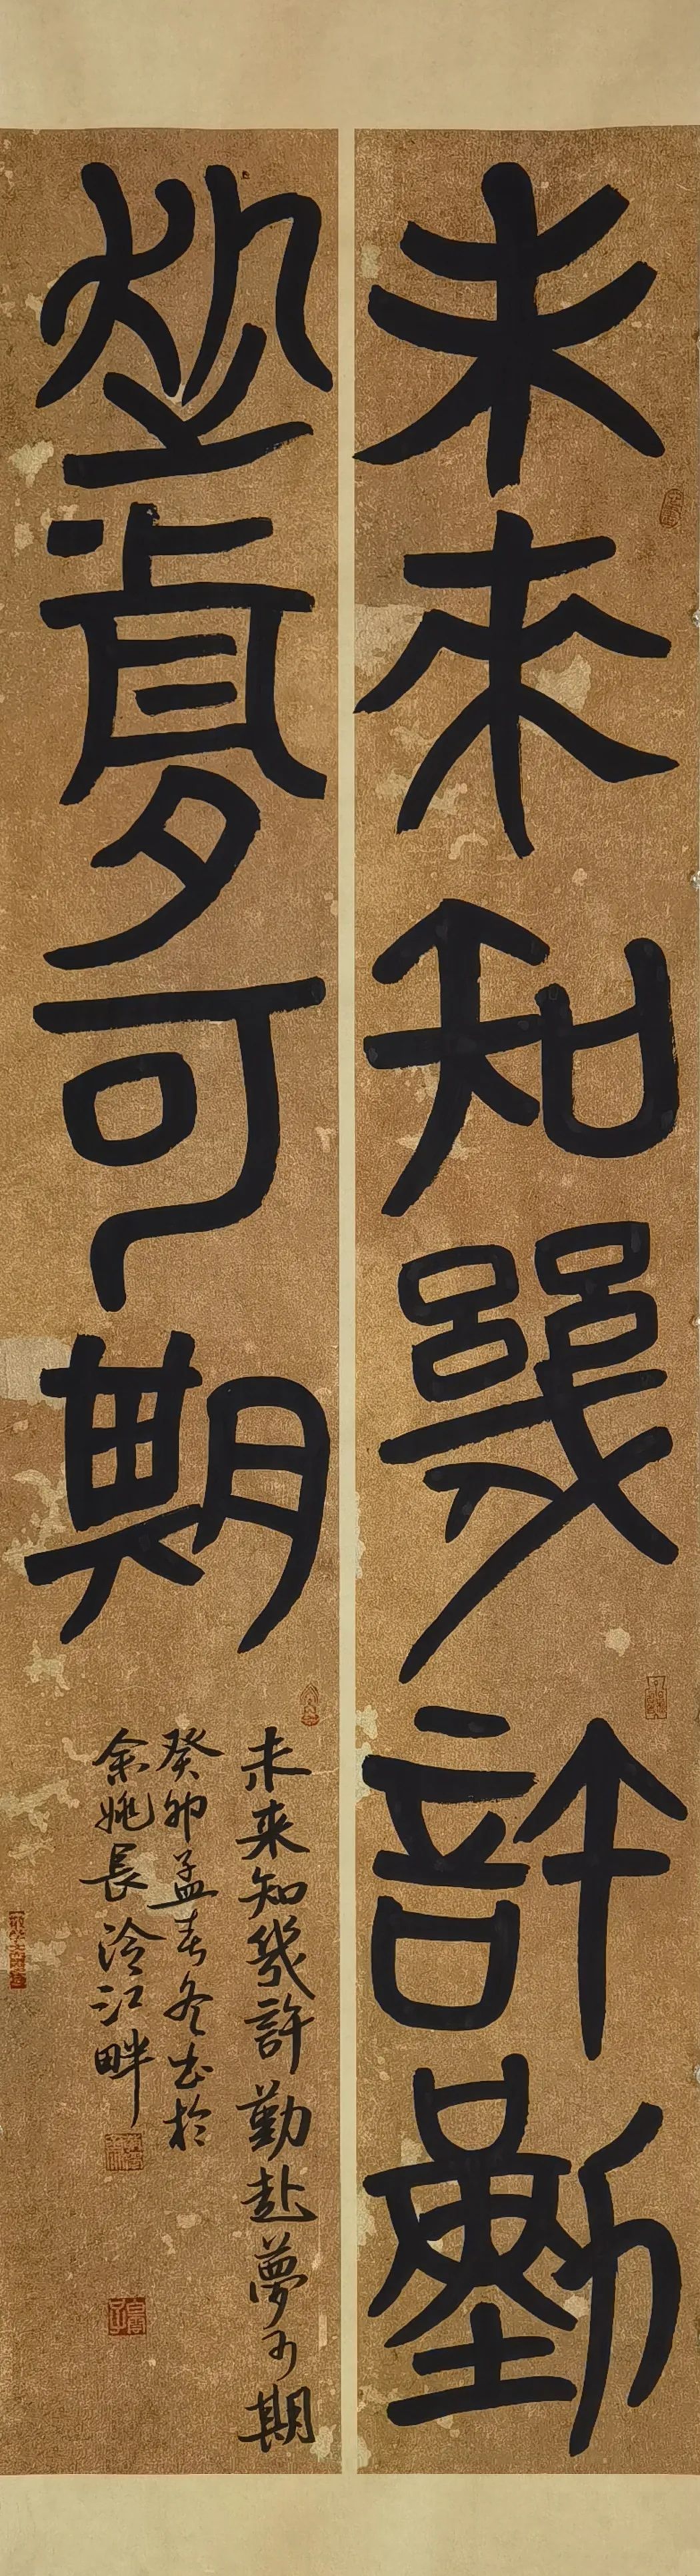 未來知幾許勤
赴夢可期
未来知幾許勤赴夢可期
癸卯孟春冬书於
余姚長泠江畔